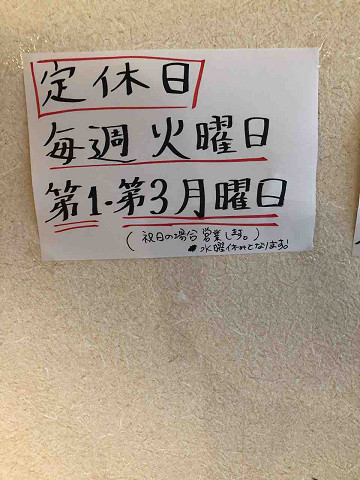 定休日
毎週 火曜日
第1・第3月曜日
(祝日の場合 営業します。)
水曜休みとなります!